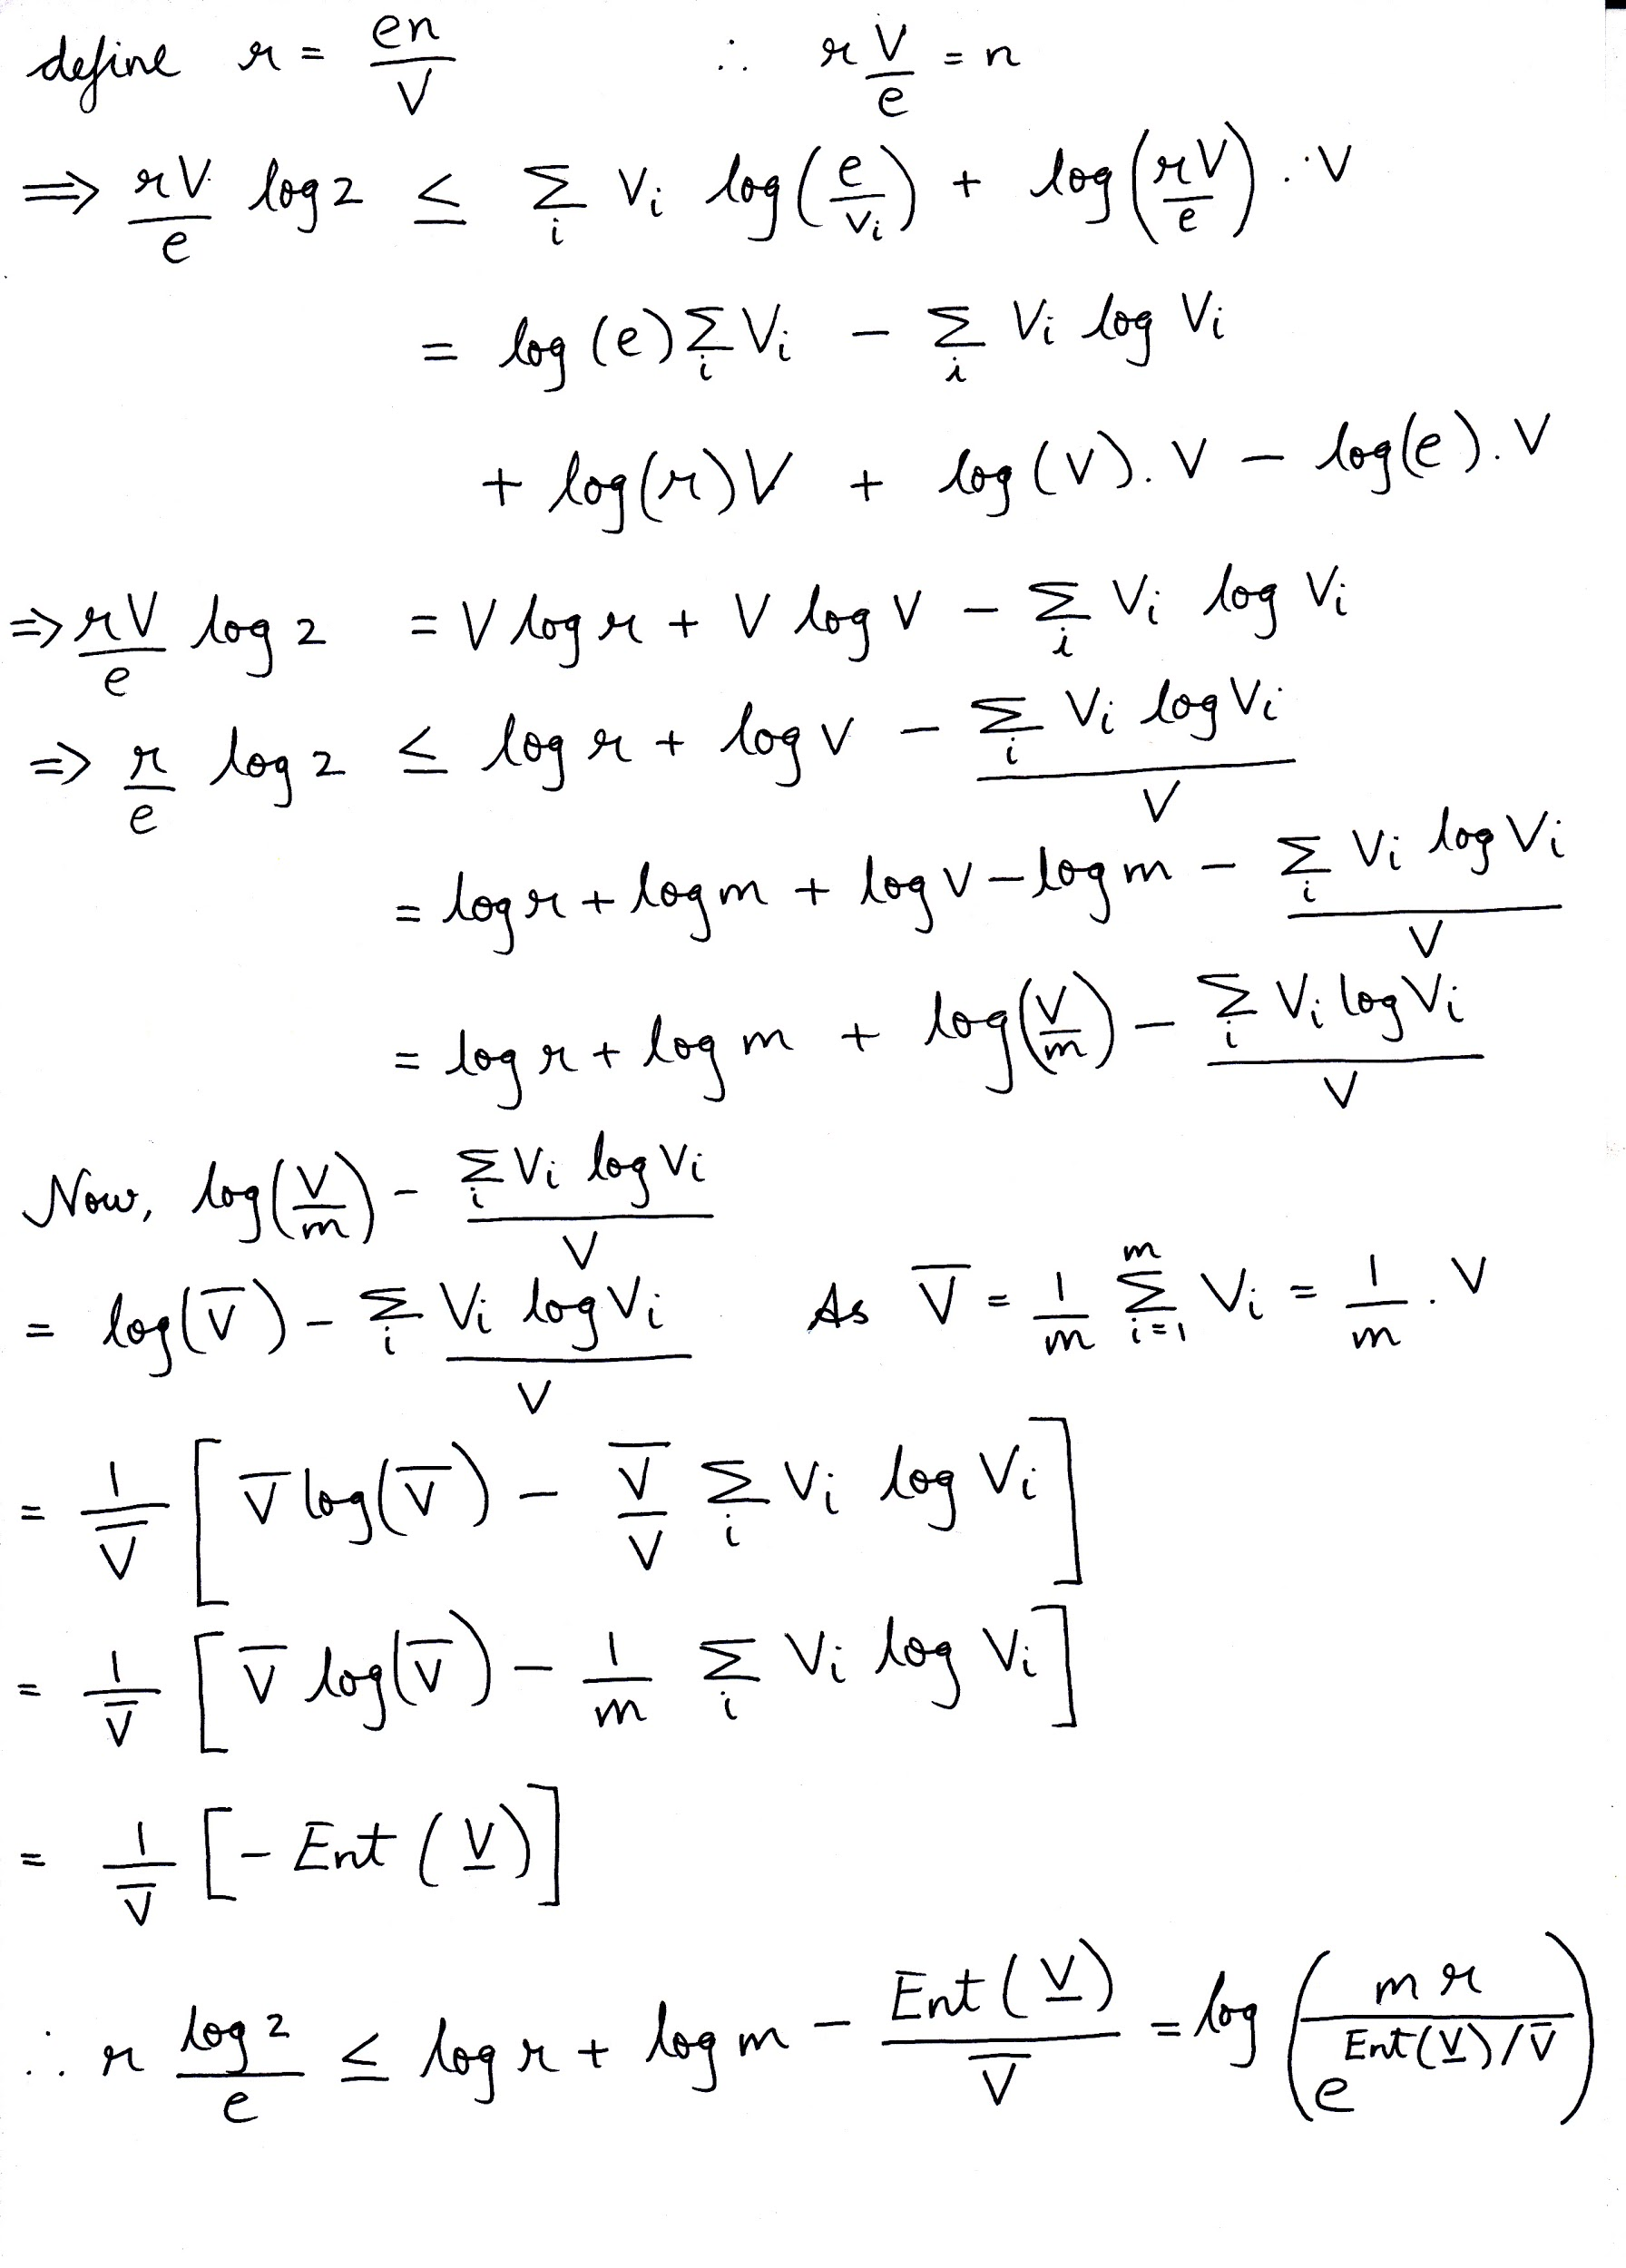 define r = en/V ∴ r V/e = n
⇒ rV/e log 2 ≤ Σ_i V_i log(e/V_i) + log(rV/e) . V
= log(e) Σ_i V_i − Σ_i V_i log V_i
+ log(r) V + log(V). V − log(e). V
⇒ rV/e log 2 = V log r + V log V − Σ_i V_i log V_i
⇒ r/e log 2 ≤ log r + log V − (Σ_i V_i log V_i)/V
= log r + log m + log V − log m − (Σ_i V_i log V_i)/V
= log r + log m + log(V/m) − (Σ_i V_i log V_i)/V
Now, log(V/m) − (Σ_i V_i log V_i)/V
= log(V̅) − Σ_i (V_i log V_i)/V As V̅ = 1/m Σ_{i=1}^{m} V_i = 1/m . V
= 1/V̅ [ V̅ log(V̅) − V̅/V Σ_i V_i log V_i ]
= 1/V̅ [ V̅ log(V̅) − 1/m Σ_i V_i log V_i ]
= 1/V̅ [ − Ent (V̲) ]
∴ r log 2/e ≤ log r + log m − Ent(V̲)/V̅ = log ( m r / e^{Ent(V̲)/V̅} )